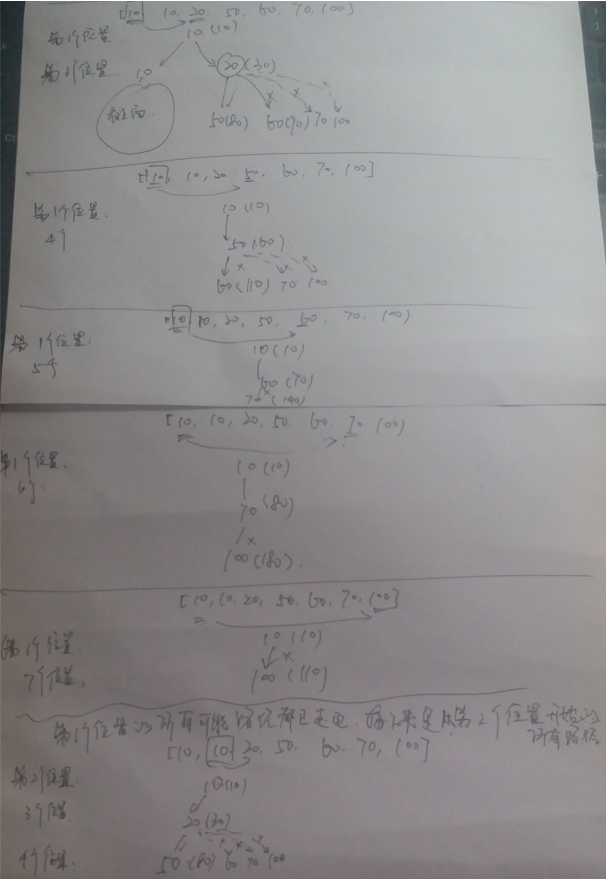 [10, 10, 20, 50, 60, 70, 100]
第1个位置
10(10)
第3个位置
10
20(30)
50(80) 60(90) 70 100
[10, 10, 20, 50, 60, 70, 100]
第1个位置
4个
10(10)
50(60)
60(110) 70 100
[10, 10, 20, 50, 60, 70, 100]
第1个位置:
5个
10(10)
60(70)
70(140)
[10, 10, 20, 50, 60, 70, 100]
第1个位置.
6个:
10(10)
70(80)
100(180).
[10, 10, 20, 50, 60, 70, 100]
第1个位置.
7个位置.
10(10)
100(110)
第1个位置的所有可能路径都已走完. 接下来是从第2个位置开始的
所有路径
[10, 10, 20, 50. 60, 70, 100]
第2个位置:
10(10)
3个位置
20(30)
4个位置.
50(80) 60 70 100